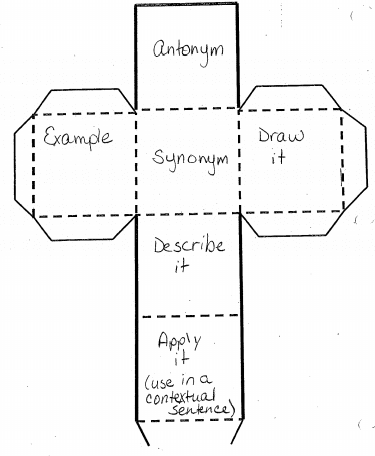 Antonym
Example
Synonym
Draw
it
Describe
it
Apply
it
(use in a
contextual
sentence)